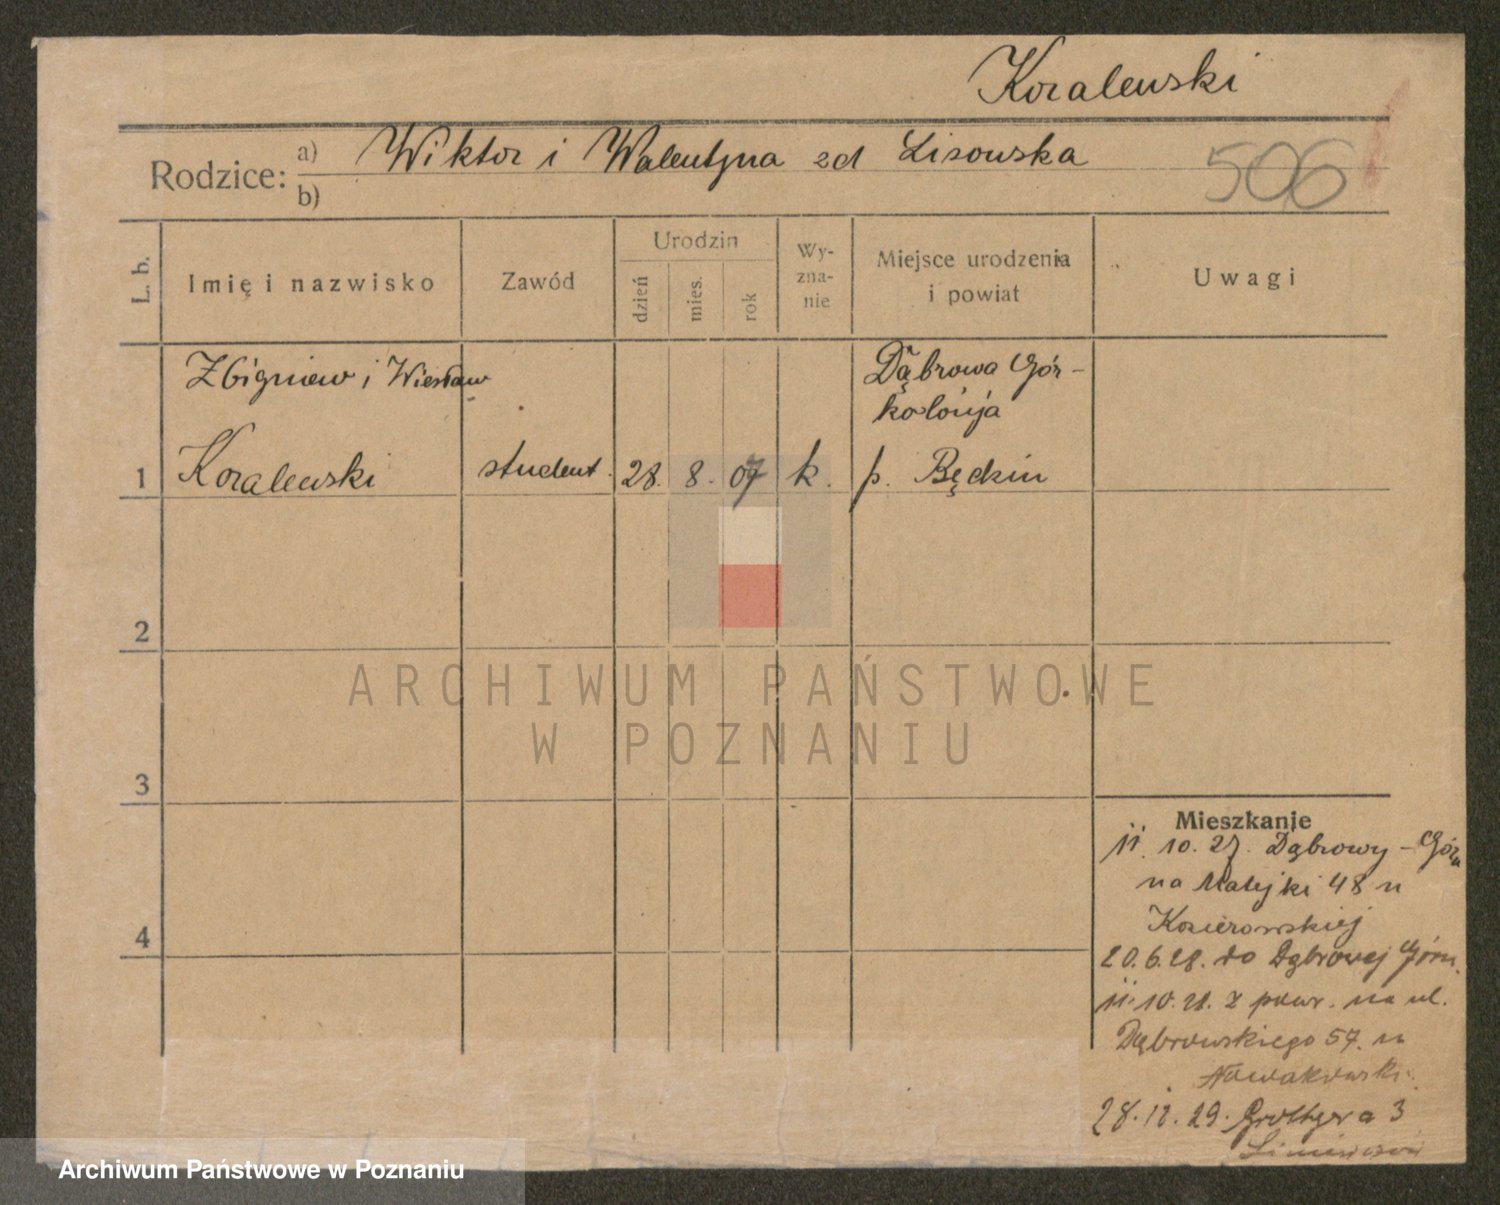 Koralewski
Rodzice: a) Wiktor i Walentyna zd Lisowska
b)
506
L. b.
Imię i nazwisko
Zawód
Urodzin
dzień
mies.
rok
Wy-
zna-
nie
Miejsce urodzenia
i powiat
Uwagi
Zbigniew i Wiesław
Koralewski
1
student.
28.
8.
07
k.
Dąbrowa Gór-
kolonja
p. Będzin
2
3
4
ARCHIWUM PAŃSTWOWE
W POZNANIU
Mieszkanie
11. 10. 27. Dąbrowy - Górn
na Matejki 48 u
20.6.28. do Dąbrowej Górn.
11. 10. 28. z powr. na ul.
Dąbrowskiego 57. u
Nowakowski
28. 12. 29. Grottgera 3
Archiwum Państwowe w Poznaniu